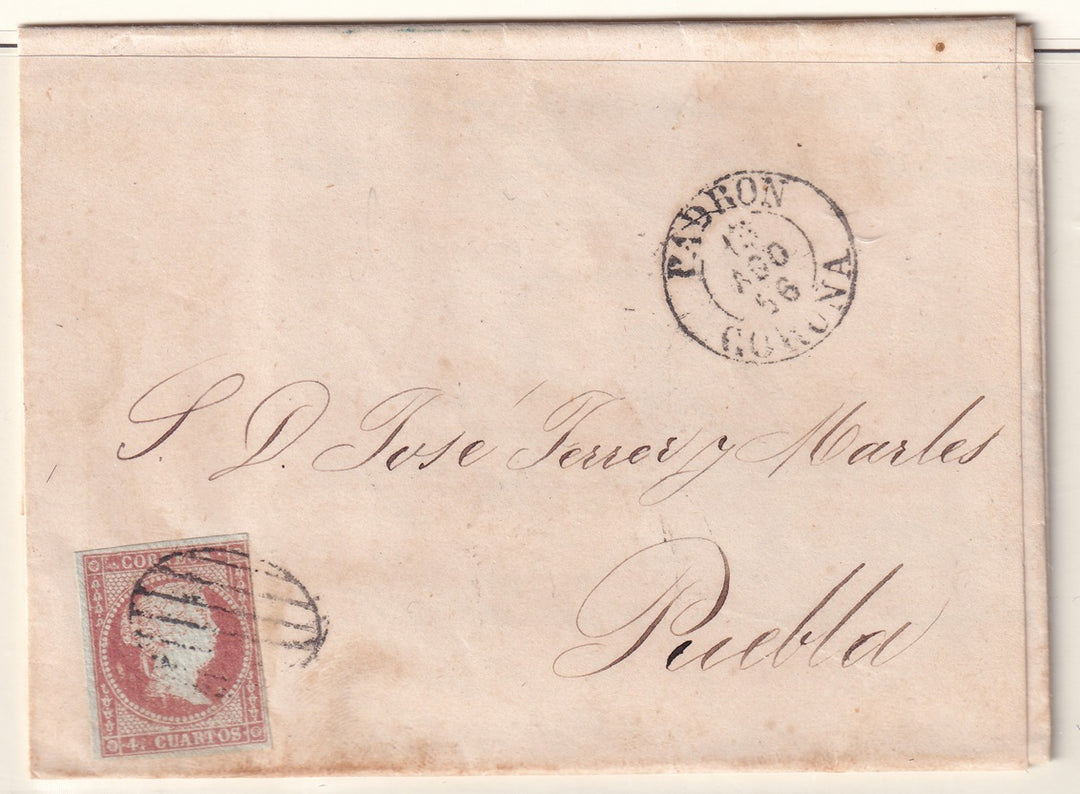 PADRON
AGO
56
CORUNA
S. D. José Ferrer y Marles
Puebla
4. CUARTOS